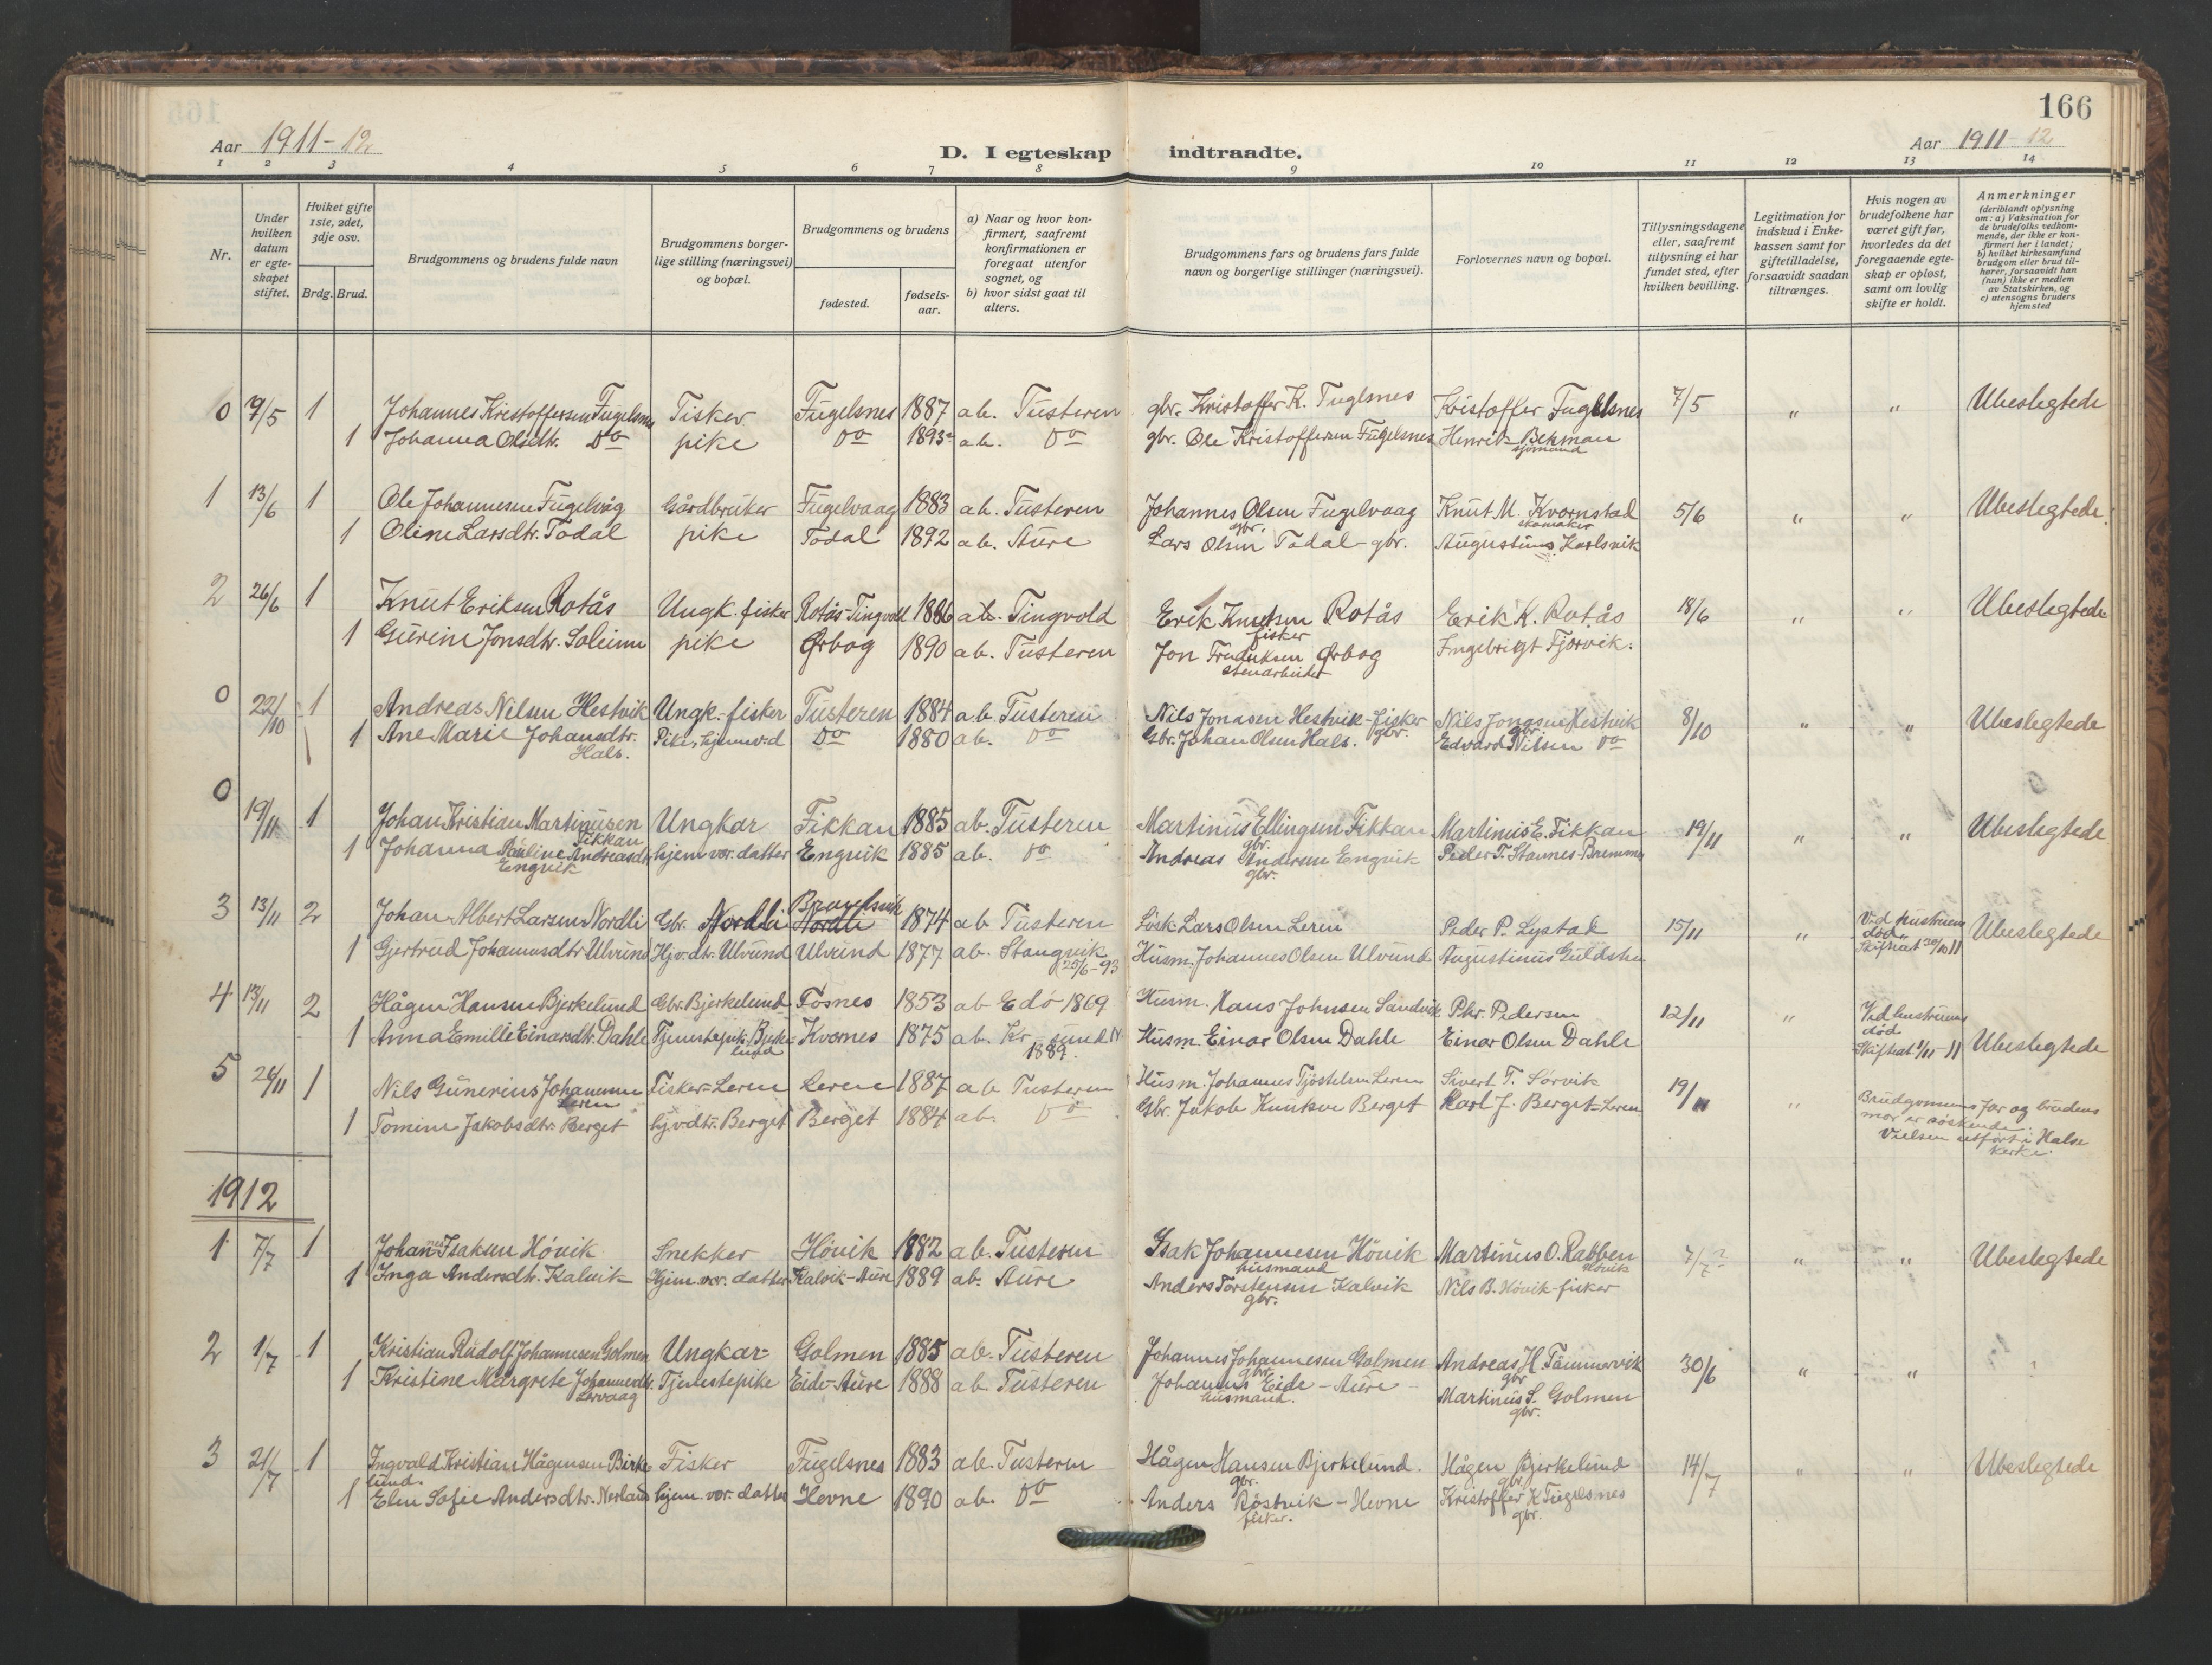 166
Aar 1911-12
D. I egteskap indtraadte.
Aar 1911-12
1 2 3 4 5 6 7 8 9 10 11 12 13 14
Nr.
Under hvilken datum er egteskapet stiftet.
Hvilket gifte 1ste, 2det, 3dje osv.
Brdg. Brud.
Brudgommens og brudens fulde navn
Brudgommens borgerlige stilling (næringsvei) og bopæl.
Brudgommens og brudens
fødested.
fødselsaar.
a) Naar og hvor konfirmert, saafremt konfirmationen er foregaat utenfor sognet, og
b) hvor sidst gaat til alters.
Brudgommens fars og brudens fars fulde navn og borgerlige stillinger (næringsvei).
Forlovernes navn og bopæl.
Tillysningsdagene eller, saafremt tillysning ei har fundet sted, efter hvilken bevilling.
Legitimation for indskud i Enkekassen samt for giftetilladelse, forsaavidt saadan tiltrænges.
Hvis nogen av brudefolkene har været gift før, hvorledes da det foregaaende egteskap er opløst, samt om lovlig skifte er holdt.
Anmerkninger (deriblandt oplysning om: a) Vaksination for de brudefolks vedkommende, der ikke er konfirmert her i landet; b) hvilket kirkesamfund brudgom eller brud tilhører, forsaavidt han (hun) ikke er medlem av Statskirken, og c) utensogns bruders hjemsted
0 7/5 1 Johannes Kristoffersen Fugelsnes Fisker Fugelsnes 1887 ab. Tusteren gbr. Kristoffer K. Fuglsnes Kristoffer Fugelsnes 7/5 " " Ubeslegtede
1 Johanna Olsdtr. Do pike Do 1893 ab. Do gbr. Ole Kristoffersen Fugelsnes Henrik Bekman sjømand
1 13/6 1 Ole Johannesen Fugelvåg Gårdbruker Fugelvaag 1883 ab. Tusteren Johannes Olsen Fugelvaag gbr. Knut M. Kvornstad skomaker 5/6 " " Ubeslegtede.
1 Oline Larsdtr. Todal pike Todal 1892 ab. Aure Lars Olsen Todal - gbr. Augustinus Karlsvik
2 26/6 1 Knut Eriksen Rotås Ungk. fisker Rotås-Tingvold 1886 ab. Tingvold Erik Knutsen Rotås fisker Erik K. Rotås 18/6 " " Ubeslegtede
1 Gurine Jonsdtr. Soleimn pike Ørbog 1890 ab. Tusteren Jon Fredriksen Ørbog stenarbeider Ingebrigt Fjorvik.
0 22/10 1 Andreas Nilsen Hestvik Ungk. fisker Tusteren 1884 ab. Tusteren Nils Jonasen Hestvik - fisker gbr. Nils Jonasen Hestvik gbr. 8/10 " " Ubeslegtede
1 Ane Marie Johansdtr. Hals. Pike, hjemv.d Do 1880 ab. Do Gbr. Johan Olsen Hals. Edvard Nilsen Do
0 19/11 1 Johan Kristian Martinusen Fikkan Ungkar Fikkan 1885 ab. Tusteren Martinus Ellingsen Fikkan gbr. Martinus E. Fikkan 19/11 " " Ubeslegtede
1 Johanna Pauline Andreasdtr. Engvik hjem. vær. datter Engvik 1885 ab. Do Andreas Andersen Engvik gbr. Peder T. Stavnes-Bremsnes
3 13/11 2 Johan Albert Larsen Nordli Gbr. Nordli Brandsvik Nordli 1874 ab Tusteren Løsk. Lars Olsen Leren Peder P. Lystad 15/11 " Ved hustruens død. Skifteat. 30/10 11 Ubeslegtede
1 Gjertrud Johannesdtr Ulvund Hj.v.dtr. Ulvund Ulvund 1877 ab. Stangvik 25/6-93 Husm. Johannes Olsen Ulvund Augustinus
4 13/11 2 Hågen Hansen Bjerkelund Gbr. Bjerkelund Fosnes 1853 ab Edö 1869 Husm. Hans Johnsen Sandvik Chr. Pedersen 12/11 " Ved hustruens død Skifteat 1/11-11 Ubeslegtede
1 Anna Emilie Einarsdtr. Dahle Tjenestepik. Bjerkelund Kvornes 1875 ab. Kr-sund N 1889. Husm. Einar Olsen Dahle Einar Olsen Dahle
5 26/11 1 Nils Gunerius Johannesen Leren Fisker-Leren Leren 1887 ab Tusteren Husm. Johannes Tjöstelsen Leren Sivert T. Sørvik 19/11 " Brudgommens far og brudens mor er søskende. Vielsen utført i Halse kirke.
1 Tomine Jakobsdtr. Berget hj.v.dtr. Berget Berget 1884 ab. Do Gbr. Jakob Knutsen Berget Karl J. Berget-Leren
1912
1 7/7 1 Johannes Isaksen Hövik Snekker Hövik 1882 ab. Tusteren Isak Johannesen Hövik husmand Martinus O. Rabben Hövik 7/7? " " Ubeslegtede
1 Inga Andersdtr. Kalvik Hjem. vær. datter Kalvik-Aure 1889 ab. Aure Anders Torstensen Kalvik gbr. Nils B. Hövik-fisker
2 1/7 1 Kristian Rudolf Johannesen Golmen Ungkar Golmen 1885 ab. Tusteren Johannes Johannesen Golmen gbr. Andreas H. Tømmervik gbr 30/6 " "
1 Kristine Margrete Johannesdtr. Lervaag Tjenestepike Eide-Aure 1888 ab. Tusteren Johannes Eide - Aure husmand. Martinus S. Golmen gbr.
3 21/7 1 Ingvald Kristian Hågensen Birkelund. Fisker Fugelsnes 1883 ab. Tusteren Hågen Hansen Bjerkelund. gbr. Hågen Bjerkelund gbr. 14/7 " " Ubeslegtede
1 Elen Sofie Andersdtr. Nerland hjem. vær. datter Hevne 1890 ab. Do Anders Röstvik - Hevne fisker. Kristoffer K Fugelsnes gbr.